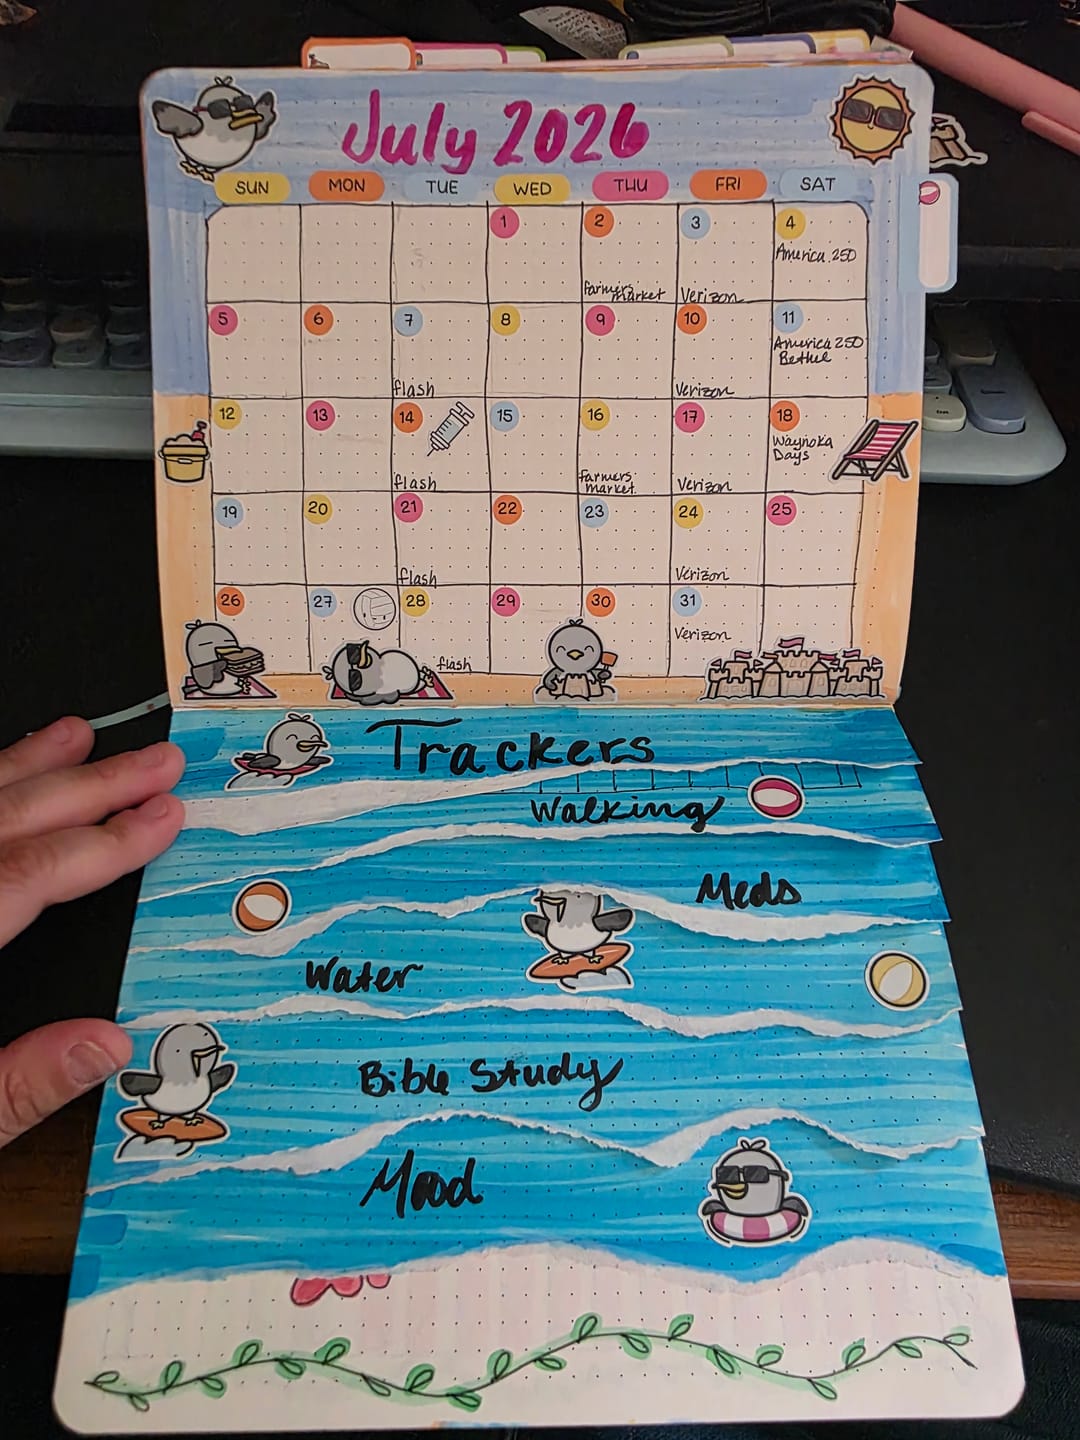 July 2026
SUN MON TUE WED THU FRI SAT
1 2 3 4
America 250
Farmers market Verizon
5 6 7 8 9 10 11
America 250
Bethel
flash Verizon
12 13 14 15 16 17 18
Waynoka
Days
flash Farmers market Verizon
19 20 21 22 23 24 25
flash Verizon
26 27 28 29 30 31
Verizon
flash
Trackers
Walking
Meds
Water
Bible Study
Mood